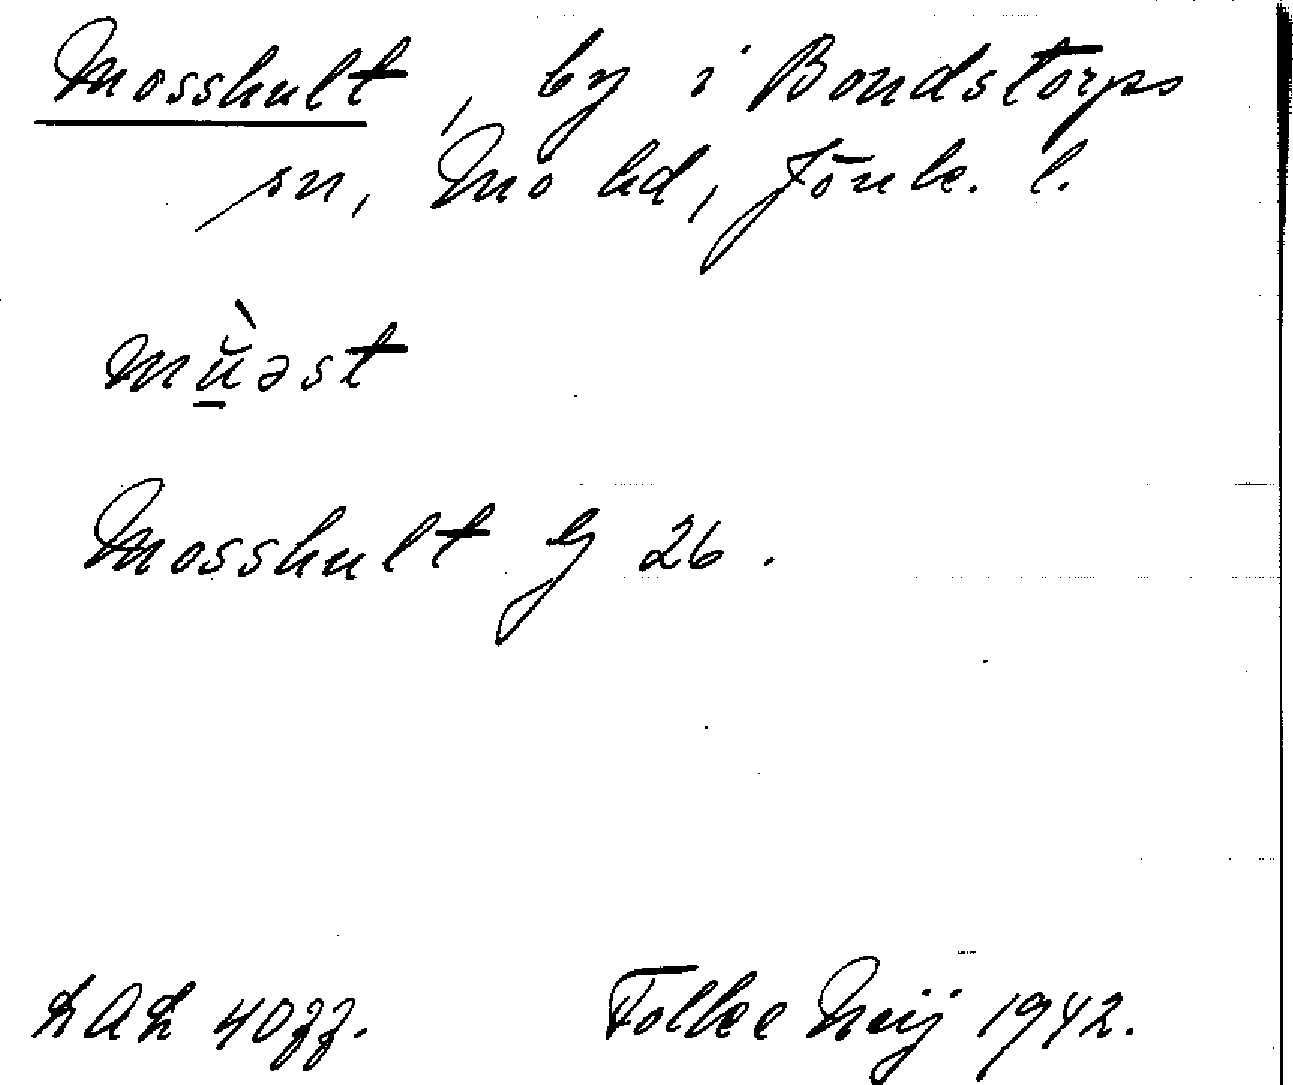 Mosshult, by i Bondstorps
sn, Mo hd, Jönk. l.
mŭ̱̀əst
Mosshult G 26.
Folke Neij 1942.